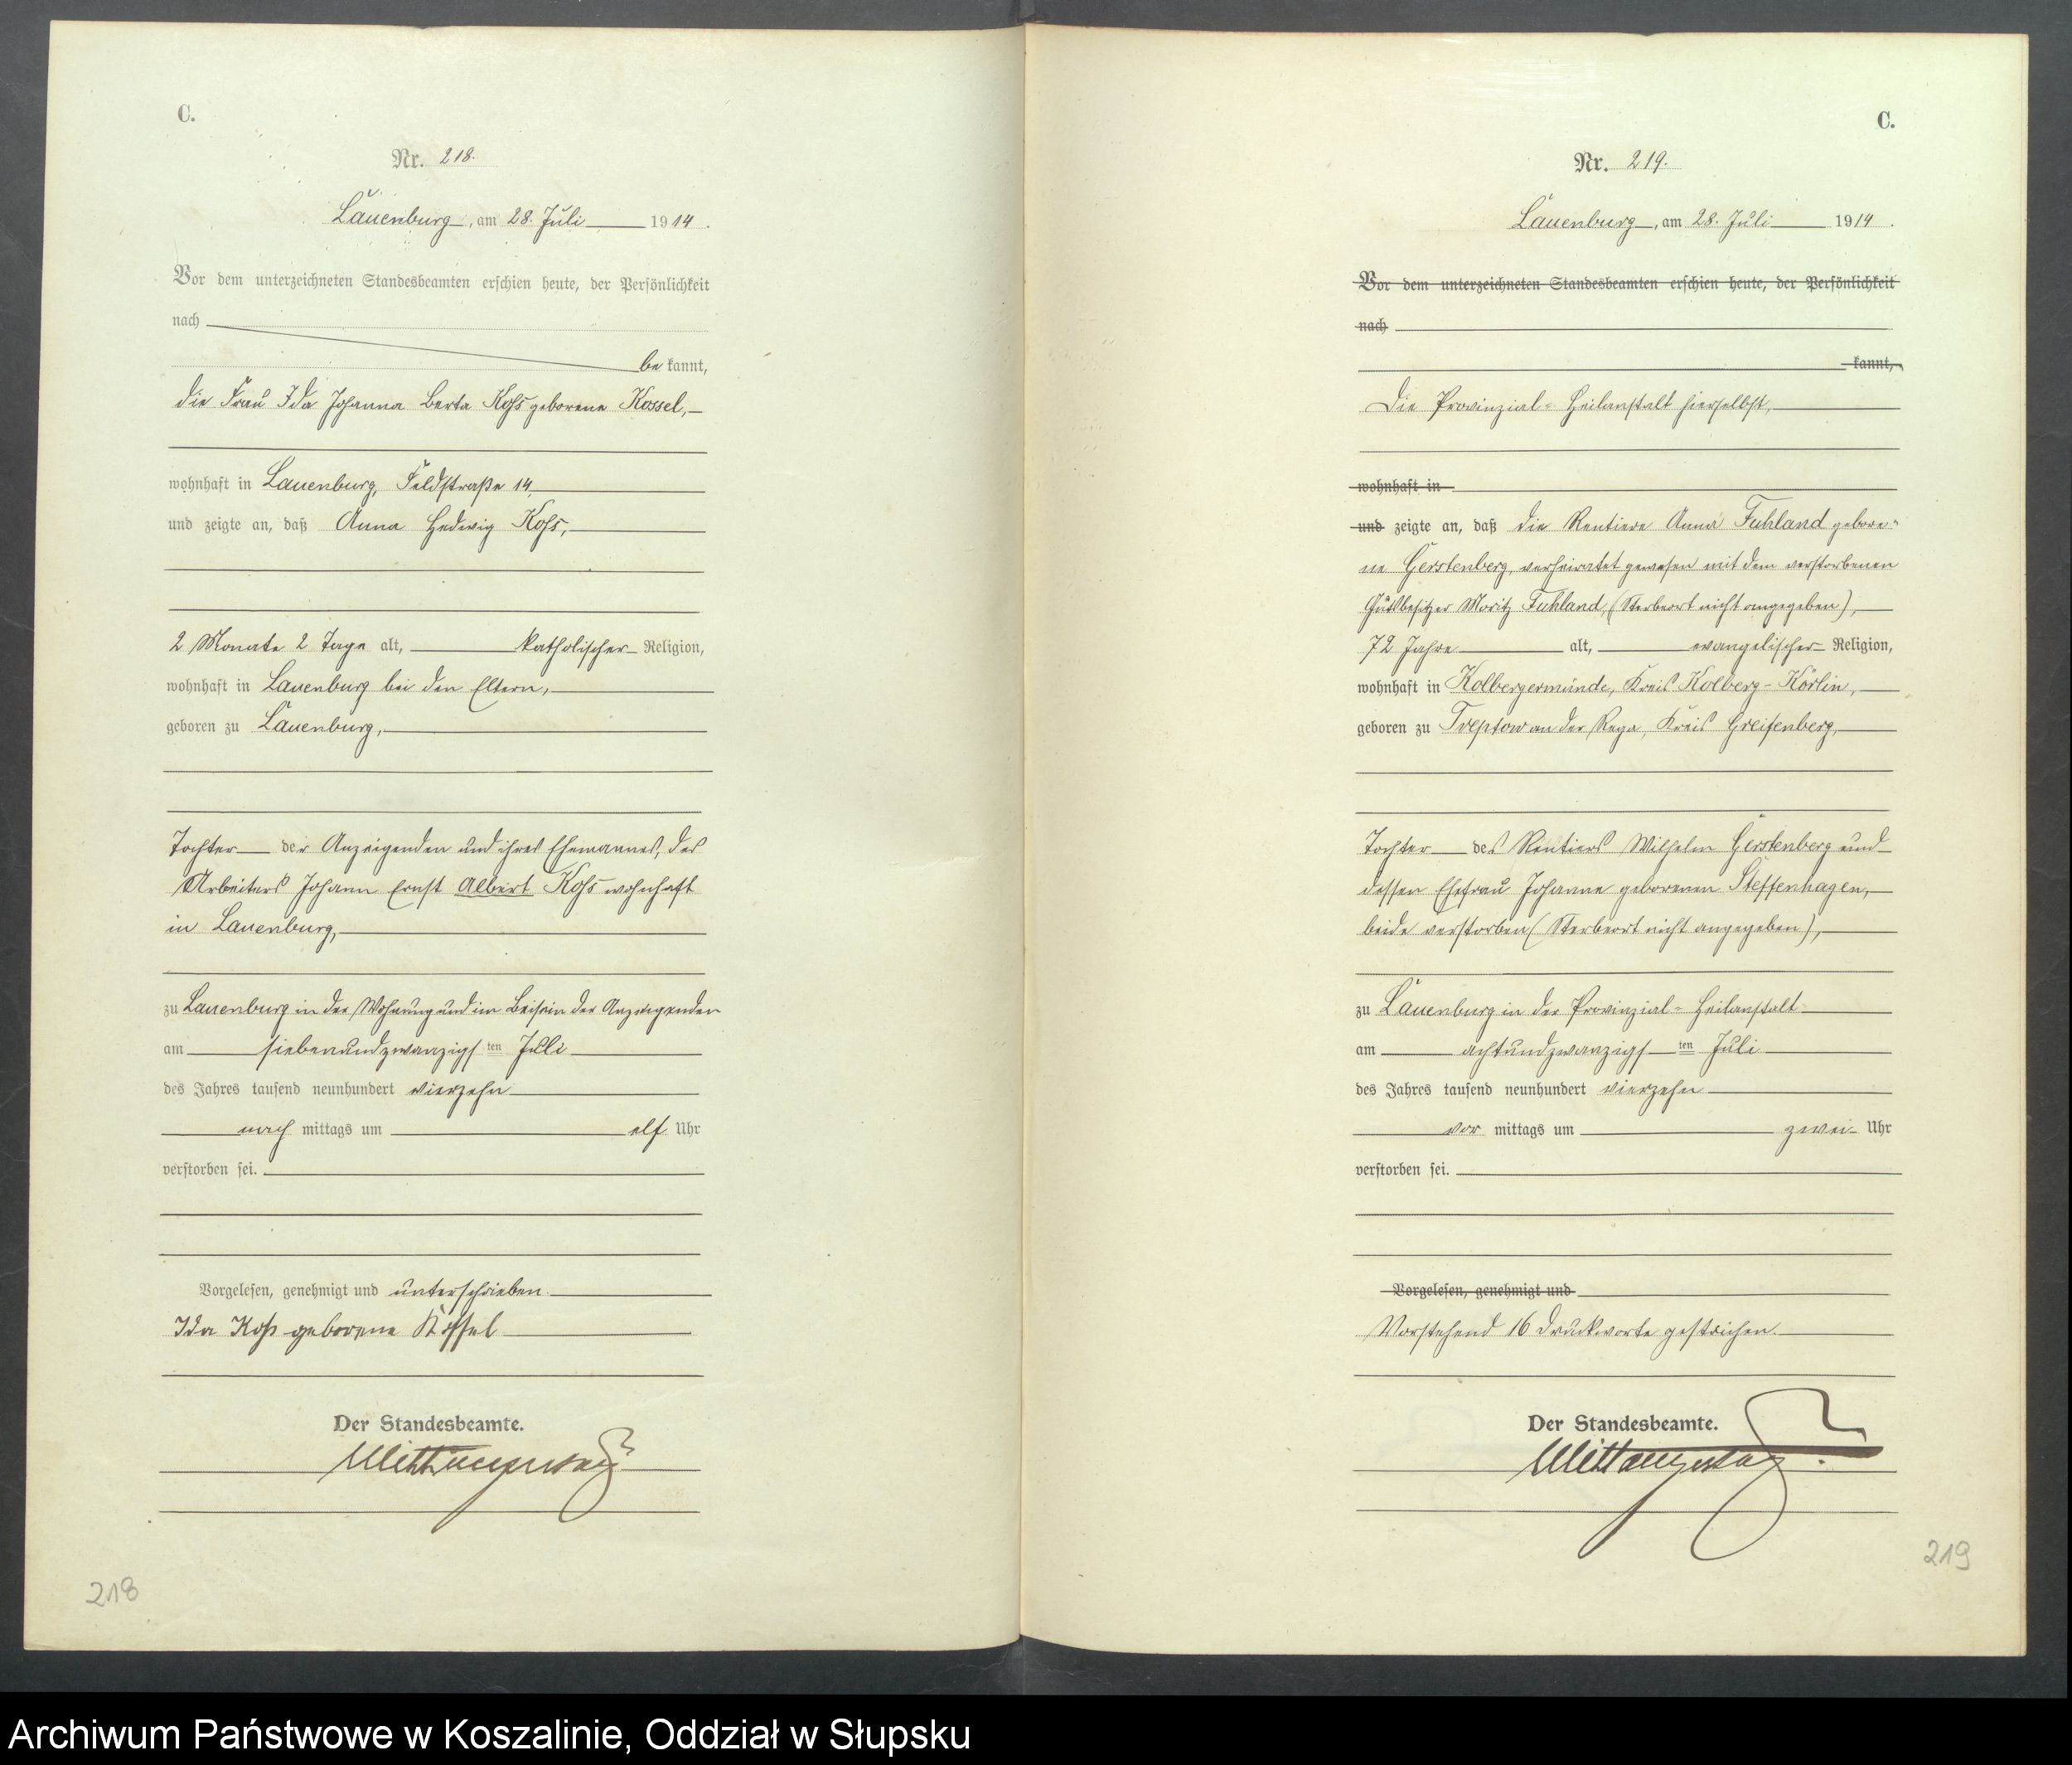 C.
Nr. 218.
Lauenburg, am 28. Juli 1914.
Vor dem unterzeichneten Standesbeamten erschien heute, der Persönlichkeit
nach
be kannt,
die Frau Ida Johanna Berta Koß geborene Kossel,
wohnhaft in Lauenburg, Feldstraße 14,
und zeigte an, daß Anna Hedwig Koß,
2 Monate 2 Tage alt, katholischer Religion,
wohnhaft in Lauenburg bei den Eltern,
geboren zu Lauenburg,
Tochter der Anzeigenden und ihres Ehemannes, des
Arbeiters Johann Ernst Albert Koß wohnhaft
in Lauenburg,
zu Lauenburg in der Wohnung und im Beisein der Anzeigenden
am siebenundzwanzigsten Juli
des Jahres tausend neunhundert vierzehn
nach mittags um elf Uhr
verstorben sei.
Vorgelesen, genehmigt und unterschrieben.
Ida Koß geborene Kossel
Der Standesbeamte.
218
C.
Nr. 219.
Lauenburg, am 28. Juli 1914.
Vor dem unterzeichneten Standesbeamten erschien heute, der Persönlichkeit
nach
kannt,
Die Provinzial-Heilanstalt hierselbst,
wohnhaft in
und zeigte an, daß die Rentiere Anna Fuhland gebore-
ne Gerstenberg, verheiratet gewesen mit dem verstorbenen
Gutsbesitzer Moritz Fuhland, (Sterbeort nicht angegeben),
72 Jahre alt, evangelischer Religion,
wohnhaft in Kolbergermünde, Kreis Kolberg-Körlin,
geboren zu Treptow an der Rega, Kreis Greifenberg,
Tochter des Rentiers Wilhelm Gerstenberg und
dessen Ehefrau Johanne geborenen Steffenhagen,
beide verstorben (Sterbeort nicht angegeben),
zu Lauenburg in der Provinzial-Heilanstalt
am achtundzwanzigsten Juli
des Jahres tausend neunhundert vierzehn
vor mittags um zwei Uhr
verstorben sei.
Vorgelesen, genehmigt und
Vorstehend 16 Druckworte gestrichen.
Der Standesbeamte.
219
Archiwum Państwowe w Koszalinie, Oddział w Słupsku